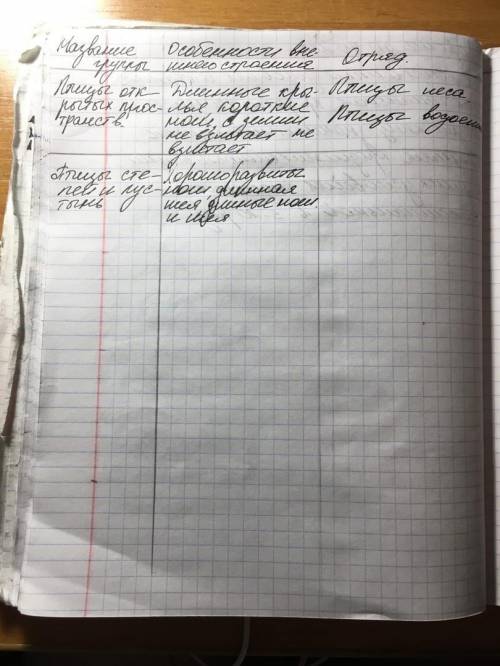 Название
группы
Особенности вне
шнего строения
Отряд.
Птицы отк-
рытых прос-
транств.
Длинные кры-
лья, короткие
ноги, с земли
не взлетает не
взлетает
Птицы леса.
Птицы водоема
Птицы сте-
пей и пус-
тынь
Хорошо развиты
ноги, длинная
шея, длинные ноги
и шея